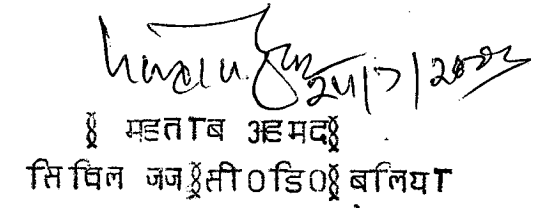 24/7/2002
§ महताब अहमद§
सिविल जज§सी0डि0§ बलिया